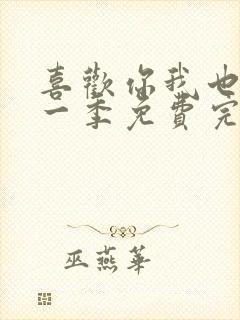 喜歡你我也
一季免費完
巫燕華